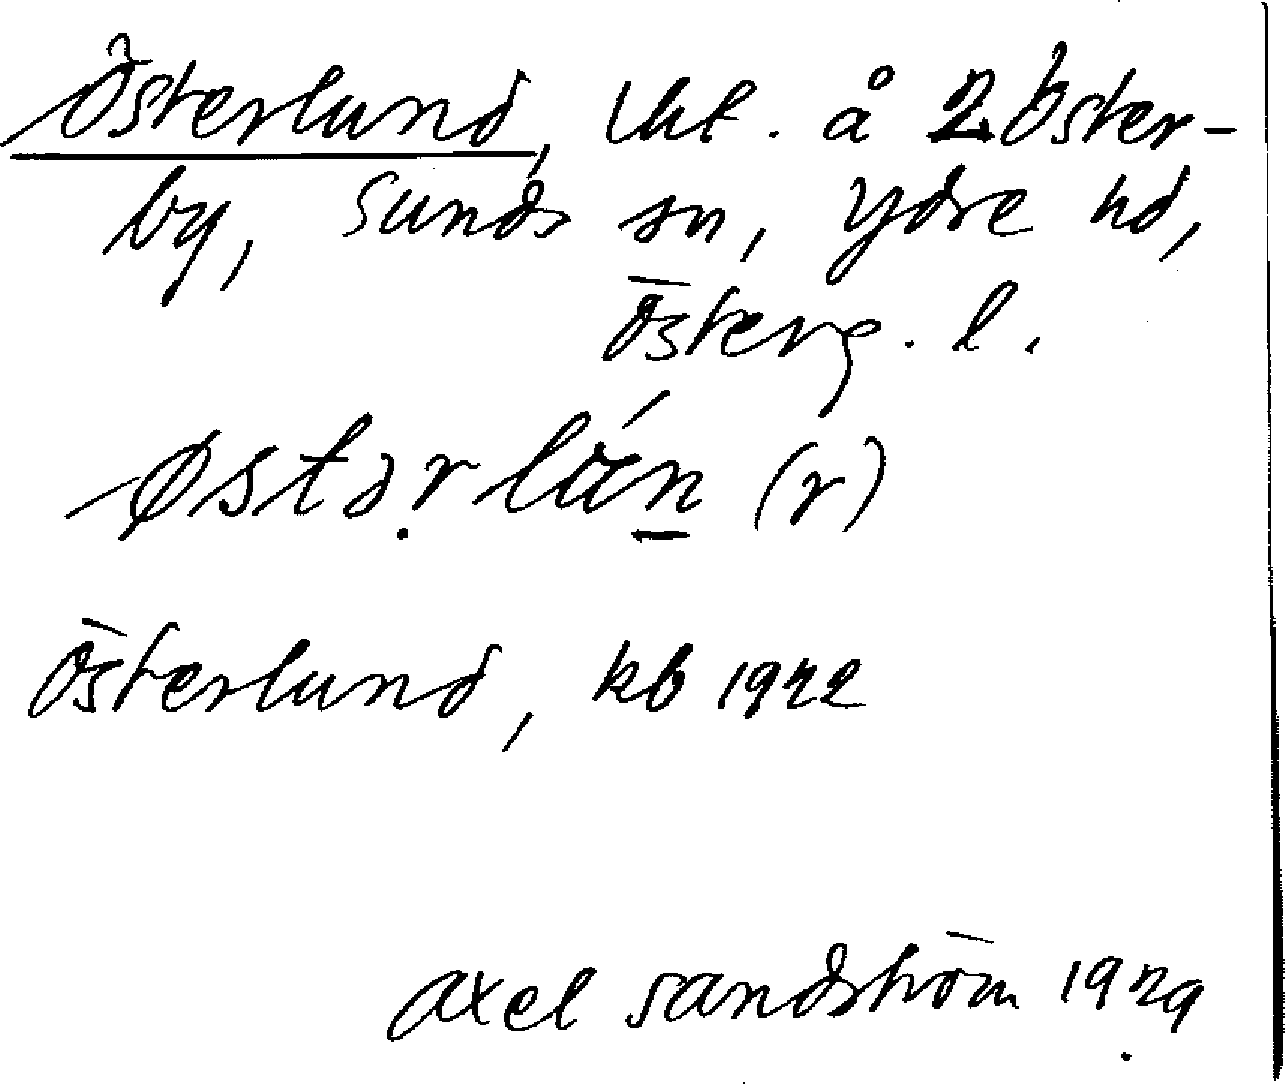 Österlund, lht. å 2 Öster-
by, Sunds sn, Ydre hd,
Österg. l.
østərlán (r)
Österlund, kb 1922
Axel Sandström 1929